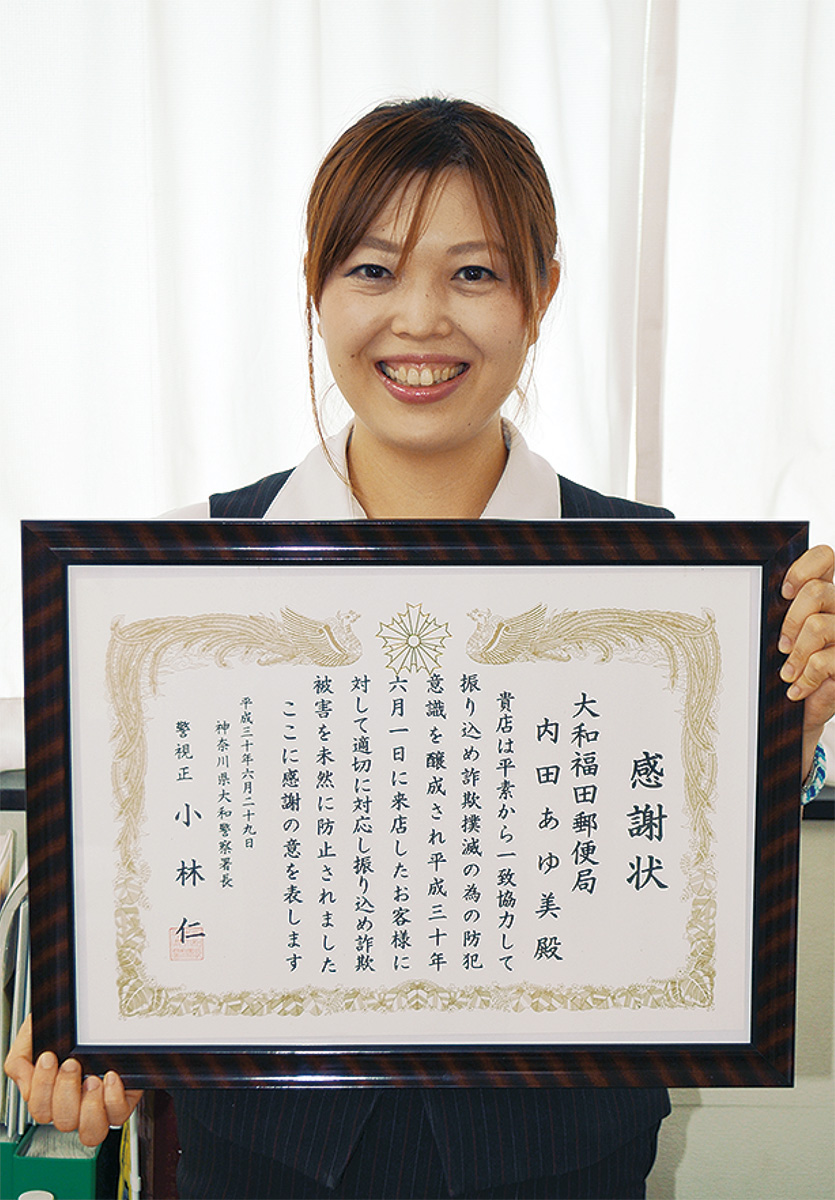 感謝状
大和福田郵便局
内田あゆ美 殿
貴店は平素から一致協力して
振り込め詐欺撲滅の為の防犯
意識を醸成され平成三十年
六月一日に来店したお客様に
対して適切に対応し振り込め詐欺
被害を未然に防止されました
ここに感謝の意を表します
平成三十年六月二十九日
神奈川県大和警察署長
警視正 小林 仁